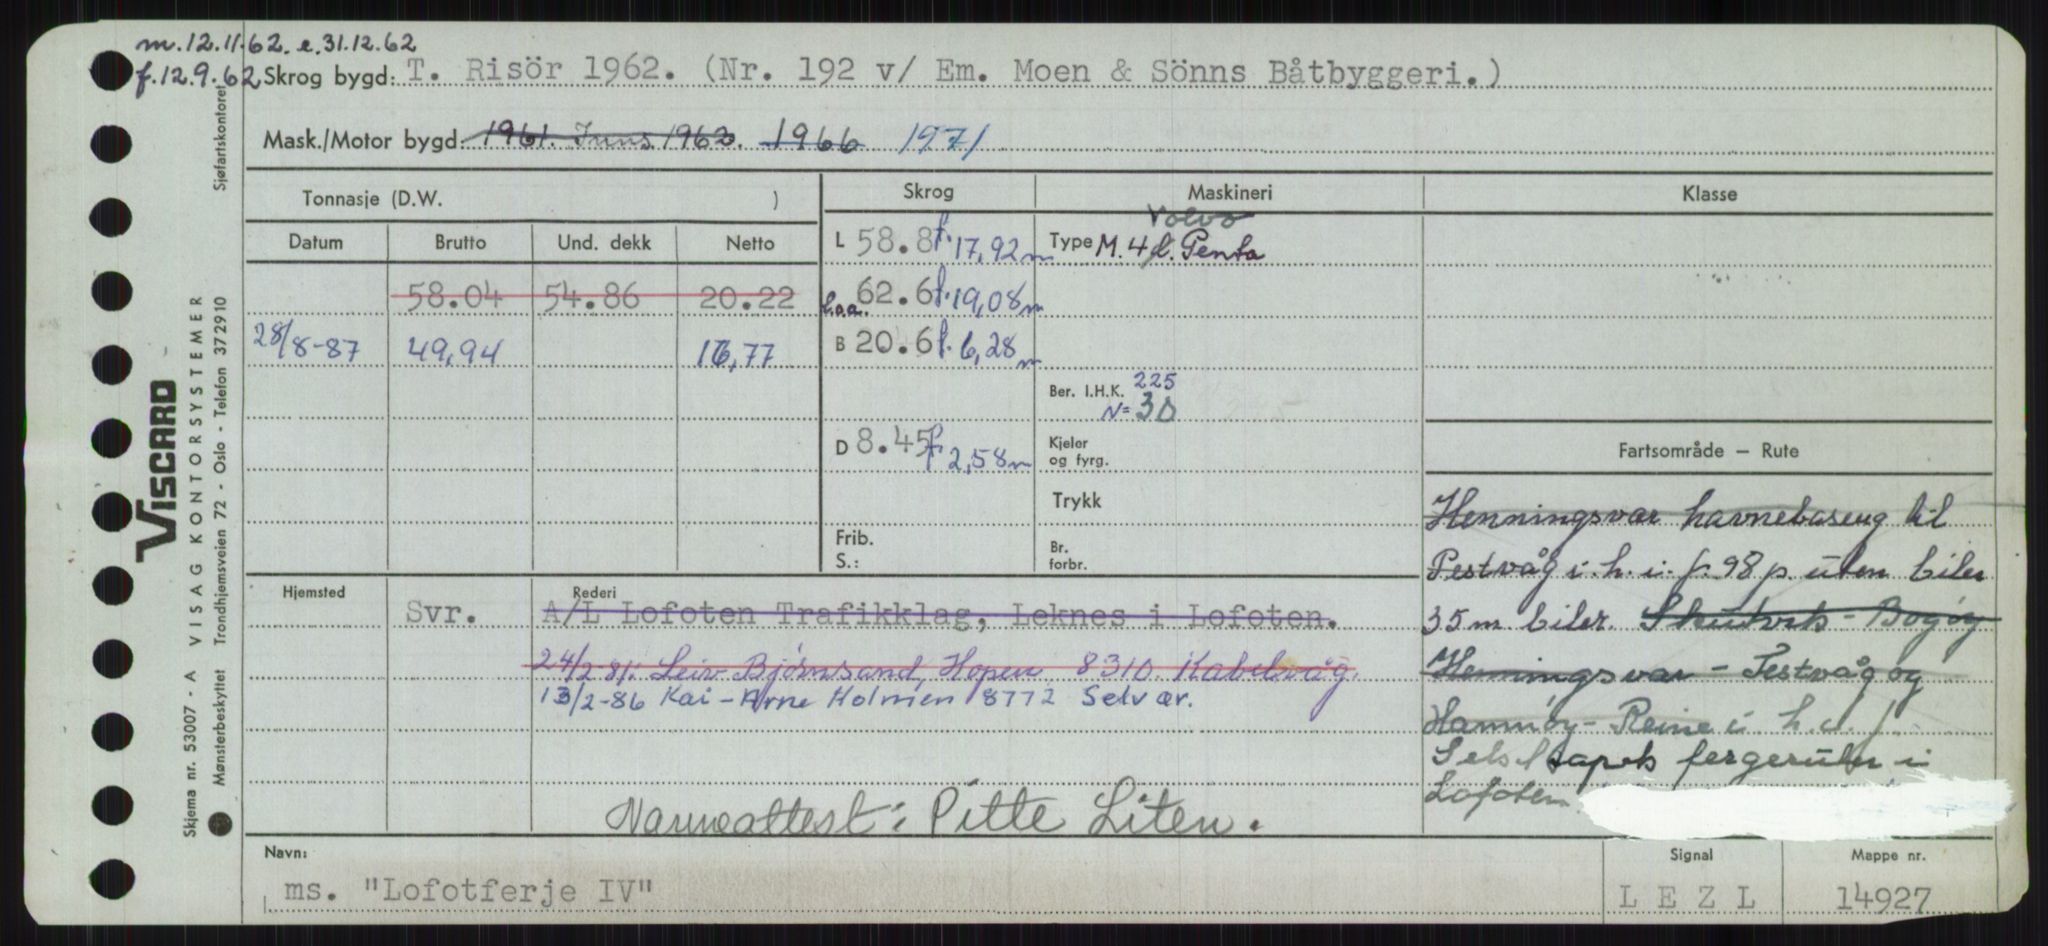 m.12.11.62. e.31.12.62
f.12.9.62 Skrog bygd: T. Risör 1962. (Nr. 192 v/ Em. Moen & Sönns Båtbyggeri.)
Mask./Motor bygd: 1961. Inns. 1962. 1966 1971
Tonnasje (D.W. ) Skrog Maskineri Klasse
Datum Brutto Und. dekk Netto
L 58.8f. 17,92m Type M. 4 Volvo Penta
58.04 54.86 20.22
L.o.a. 62.6f. 19,08m
28/8-87 49,94 16,77
B 20.6f. 6,28m
Ber. I.H.K. 225
N= 30
D 8.45f. 2,58m
Kjeler
og fyrg.
Trykk
Frib.
S.:
Br.
forbr.
Fartsområde — Rute
Henningsvær havnebaseng til
Festvåg i. h. i. f. 98 p. uten biler
35 m biler. Skutvik - Bogøy
Henningsvær - Festvåg og
Hamnøy - Reine i h.
Selskapets fergeruter i
Lofoten
Hjemsted Rederi
Svr. A/L Lofoten Trafikklag, Leknes i Lofoten.
24/2-81: Leiv Bjørnsand, Hopen 8310 Kabelvåg.
13/2-86 Kai-Arne Holmen 8772 Selvær.
Navneattest: Pitte Liten.
Navn: Signal Mappe nr.
ms. "Lofotferje IV" L E Z L 14927
Sjøfartskontoret
VISCARD
VISAG KONTORSYSTEMER
Trondhjemsveien 72 - Oslo - Telefon 372910
Skjema nr. 53007 - A
Mønsterbeskyttet